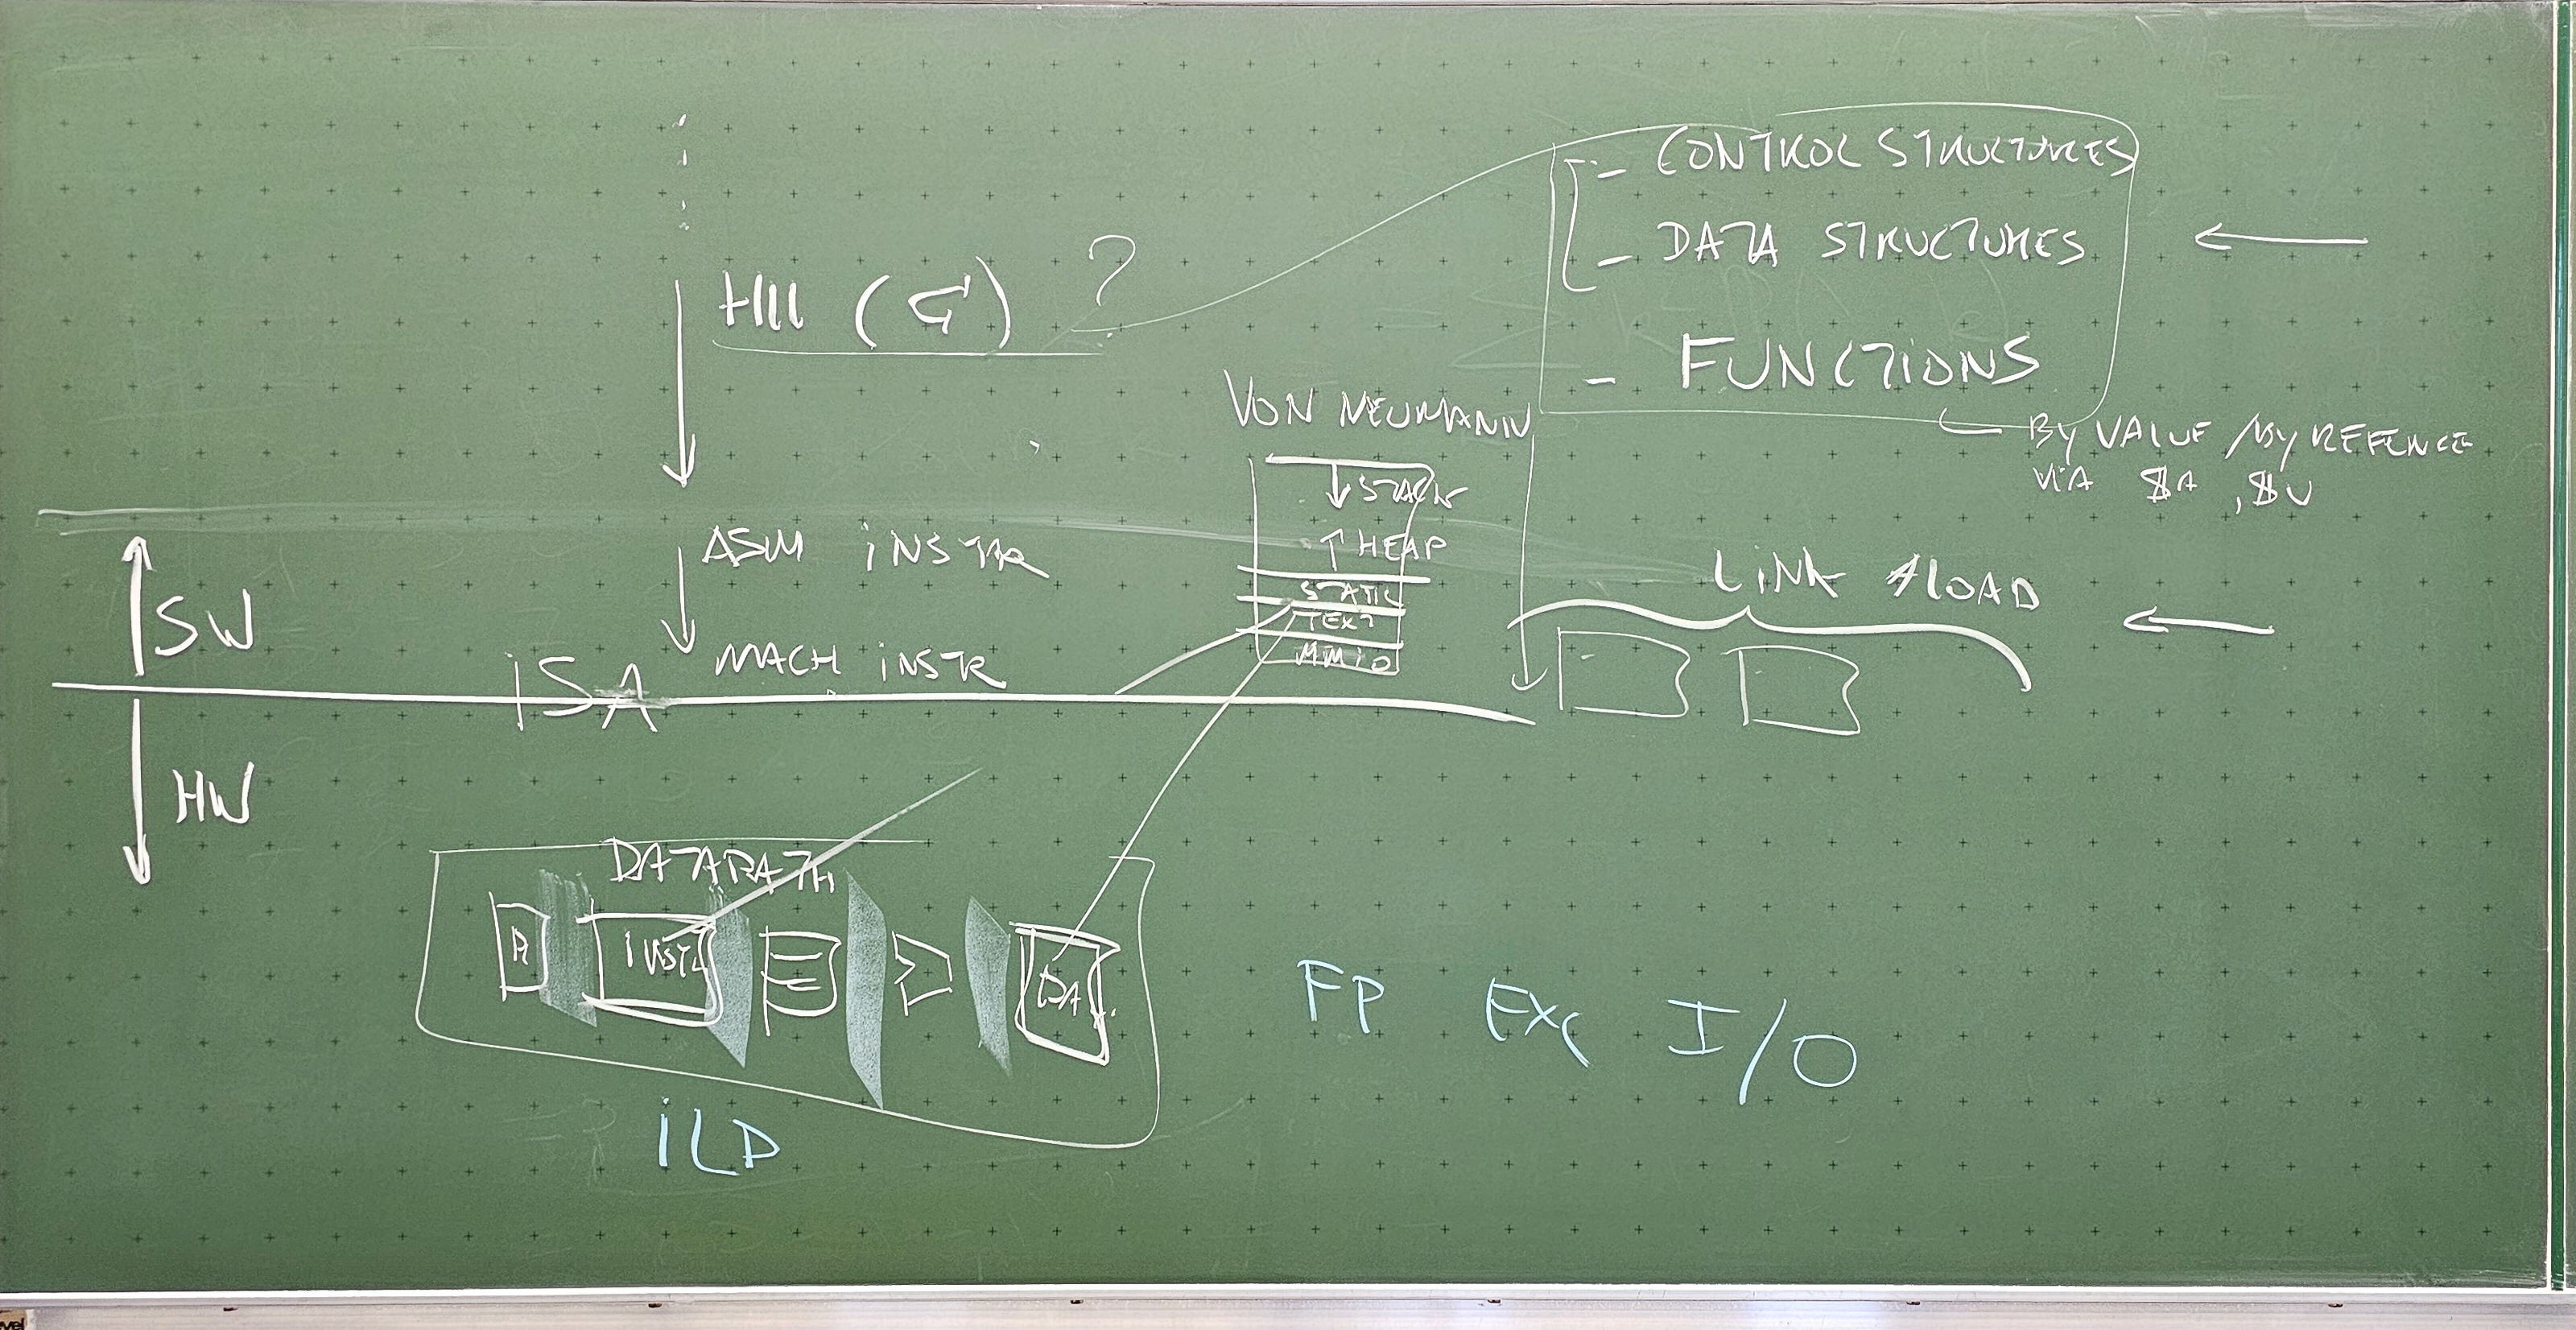 - CONTROL STRUCTURES
- DATA STRUCTURES
HLL (C) ?
- FUNCTIONS
VON NEUMANN
BY VALUE / BY REFENCE
VIA $A, $V
↓ STACK
↑ HEAP
ASM INSTR
LINK & LOAD
STATIC
TEXT
MMIO
SW
MACH INSTR
ISA
HW
DATAPATH
INSTR
DA.
FP EXC I/O
ILP